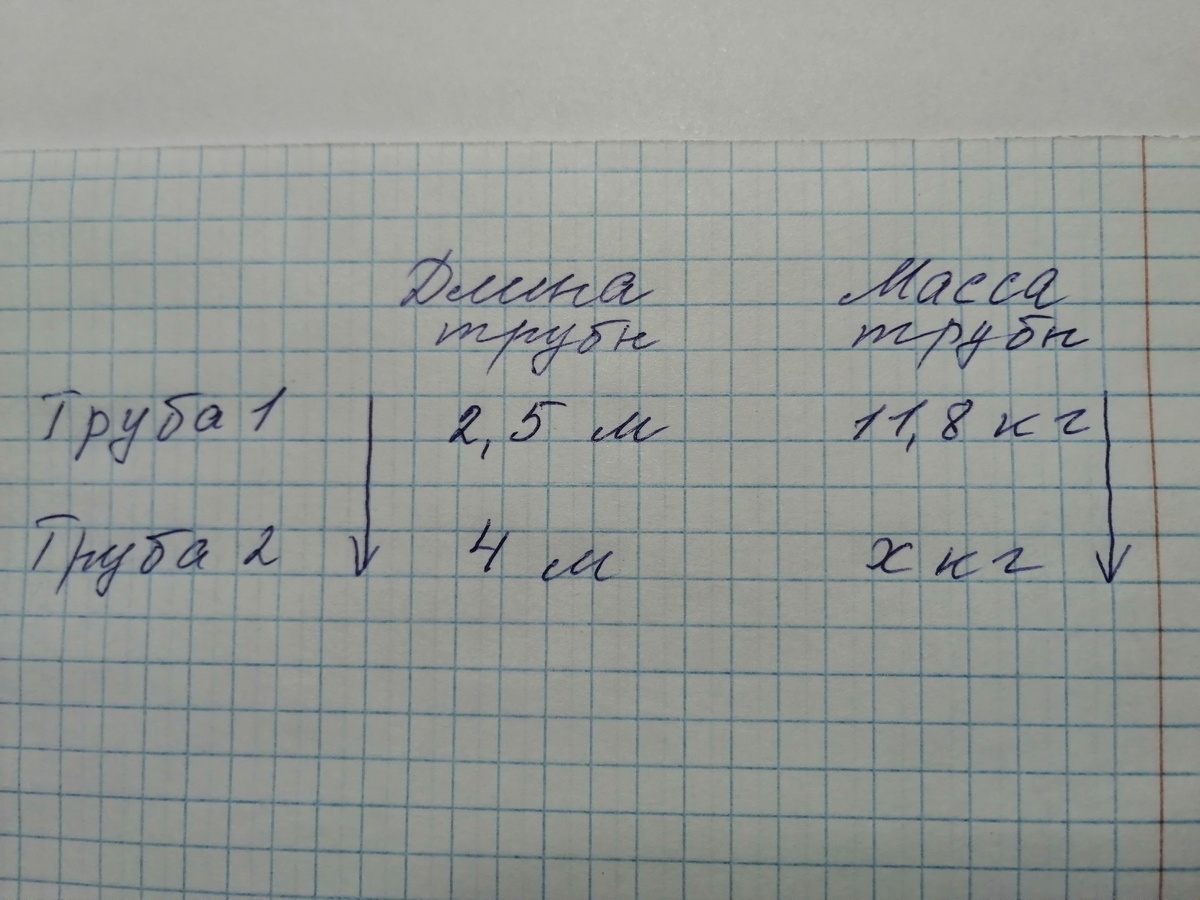 Длина Масса
трубы трубы
Труба 1 2,5 м 11,8 кг
Труба 2 4 м х кг